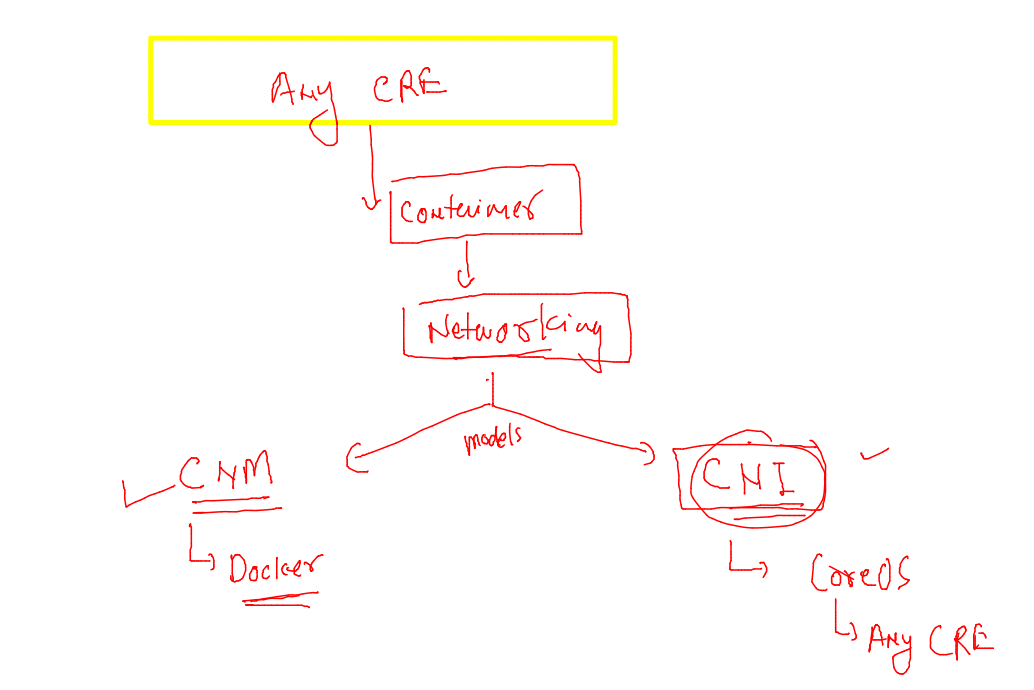 Any CRE
Container
Networking
models
CNM
CNI
Docker
CoreOS
Any CRE